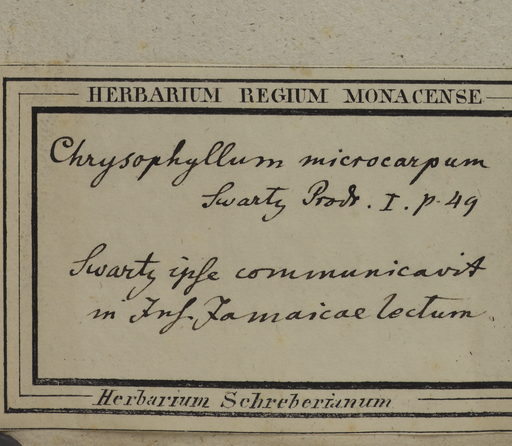 HERBARIUM REGIUM MONACENSE
Chrysophyllum microcarpum
Swartz Prodr. I. p. 49
Swartz ipse communicavit
in Ins. Jamaicae lectum
Herbarium Schreberianum